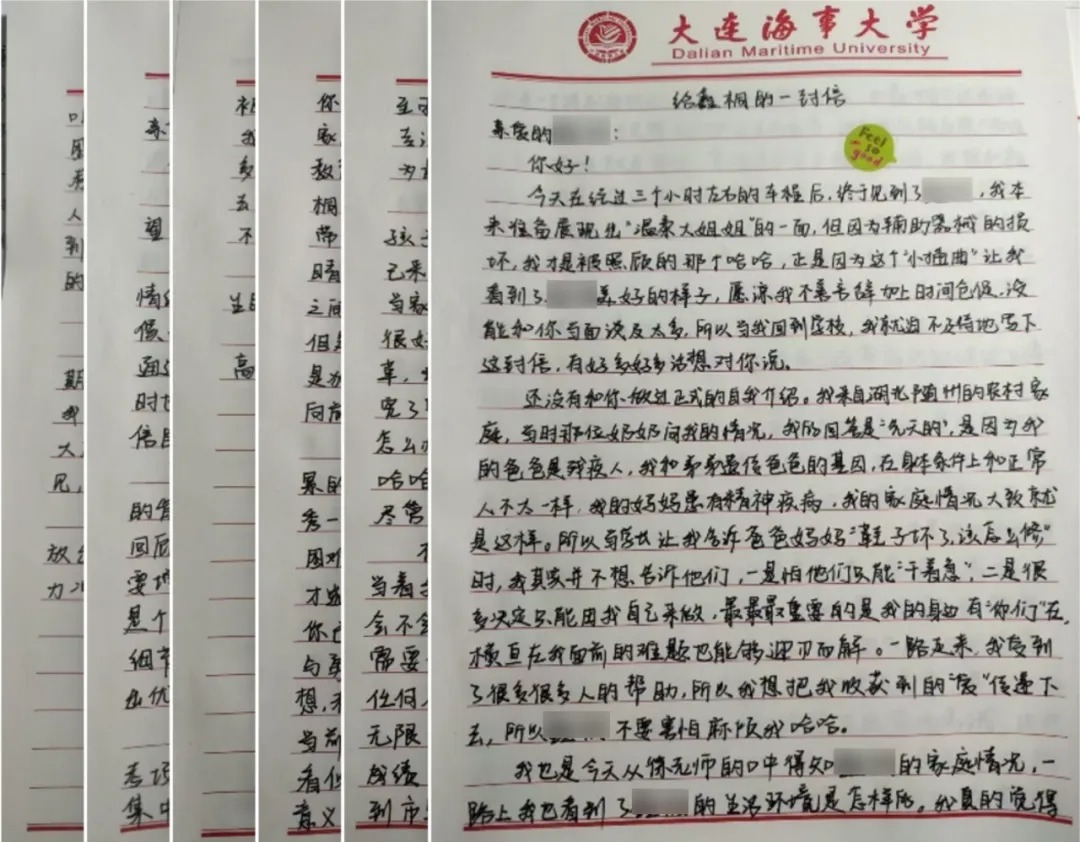 人
到
的
期
我
大
见,
放
力
望
情绪
时
信
的
回
要
是个
细节
出优
考项
集中
多
去
不
高
你
家
教
桐
常
睛
之间
但
是
向前
累的
秀一
困难
才
你
与
想,
当前
看
意义
至
为
孩子
己来
当家
很好
章,
完了
怎么
哈哈
尽管
当着
会不会
需要
任何
无限
成绩
到市
大连海事大学
Dalian Maritime University
给鑫桐的一封信
亲爱的 :
Feel
so
good
你好!
今天在经过三个小时左右的车程后,终于见到了 ,我本
来准备展现出"温柔大姐姐"的一面,但因为辅助器械的损
坏,我才是被照顾的那个哈哈,正是因为这个"小插曲"让我
看到了 美好的样子,原谅我不善言辞加上时间仓促,没
能和你当面谈及太多,所以当我回到学校,我就迫不及待地写下
这封信,有好多好多话想对你说。
还没有和你做过正式的自我介绍。我来自湖北随州的农村家
庭,当时那位奶奶问我的情况,我的回答是"先天的",是因为我
的爸爸是残疾人,我和弟弟遗传爸爸的基因,在身体条件上和正常
人不太一样,我的妈妈患有精神疾病,我的家庭情况大致就
是这样。所以当 让我告诉爸爸妈妈"鞋子坏了,该怎么修"
时,我其实并不想告诉他们,一是怕他们只能"干着急",二是很
多决定只能由我自己来做,最最最重要的是我的身边有"你们"在,
横亘在我面前的难题也能够迎刃而解。一路走来,我受到
了很多很多人的帮助,所以我想把我收获到的"爱"传递下
去,所以 不要害怕麻烦我哈哈。
我也是今天从徐老师的口中得知 的家庭情况,一
路上我也看到了 的生活环境是怎样的。我真的觉得